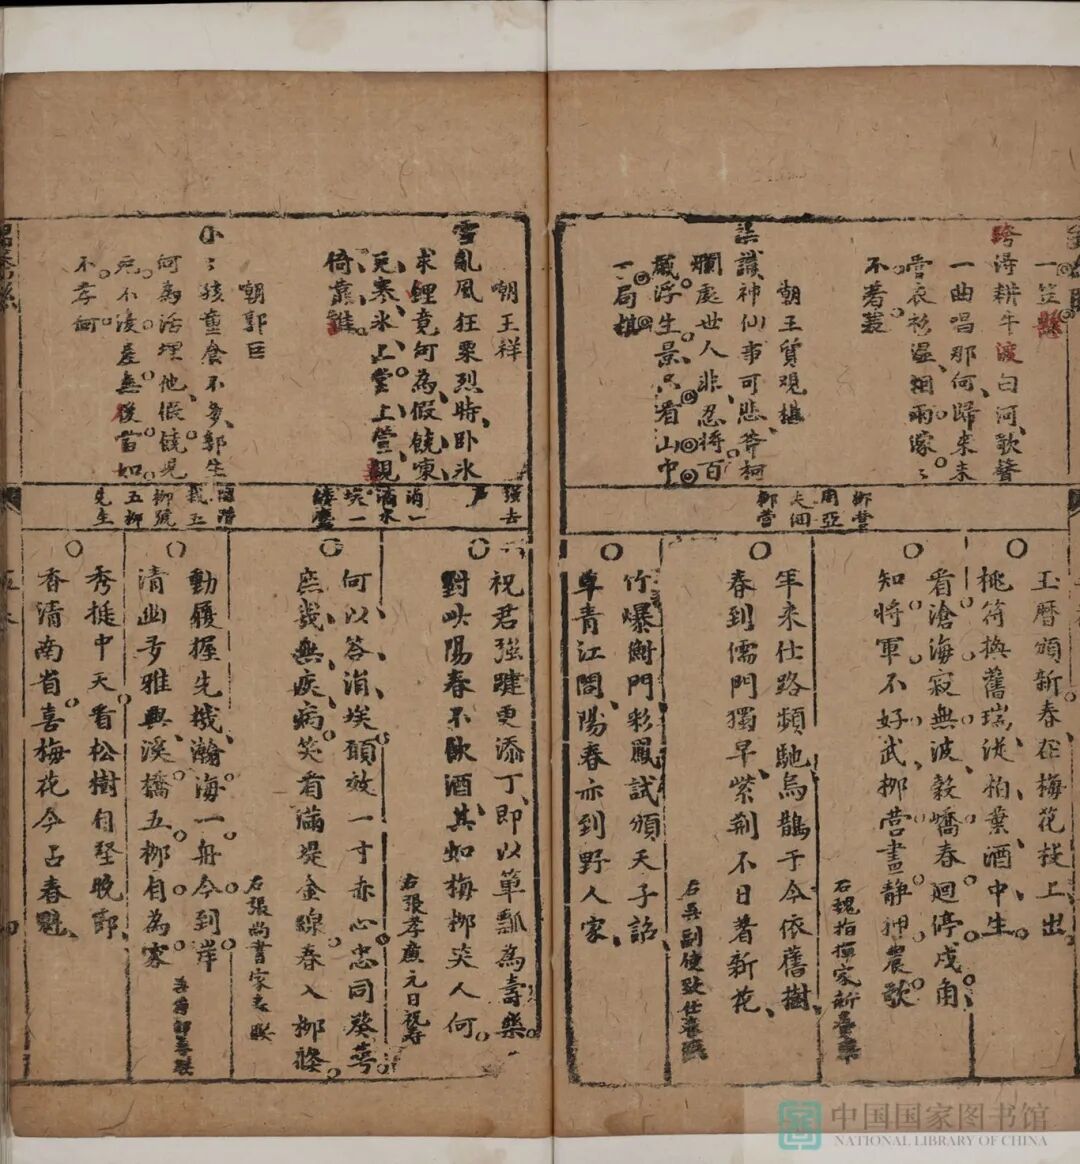 一笠懸
跨浔耕牛渡白河歌聲
一曲唱那何歸來未
衣衫濕烟雨濛〻
不著蓑
嘲王質观棋
識神仙事可悲等柯
爛處世人非忍将百
歲浮生景只看山中
一局棋
柳营
周亞
夫细
柳营
玉暦頒新春在梅花枝上出
桃符换舊瑞從柏葉酒中生
看滄海寂無波穀嶠春迴停戍角
知将軍不好武柳营晝静狎農歌
右魏指揮家新春聯
年来仕路頻馳烏鵲于今依舊樹
春到儒門獨早紫荆不日着新花
右吳副使致仕春聯
竹爆衡門彩鳳試頒天子詔
草青江閣陽春亦到野人家
嘲王祥
雪亂風狂栗烈時卧氷
求鯉竟何為假饒凍
死寒氷上堂上萱親
倚靠誰
嘲郭巨
小〻孩童食不多郭生
何為活埋他假饒見
死不凌差無後當如
不孝何
强去
声
涓一
滴水
埃一
陶潜
栽五
柳號
五柳
先生
祝君强健更添丁即以箪瓢為壽樂
對此陽春不飲酒其如梅柳笑人何
右張孝廣元日祝壽
何以答涓埃願效一寸赤心忠同葵萼
庶幾無疾病笑看滿堤金線春入柳條
右張尚書家春联
動履握先機瀚海一舟今到岸
清幽多雅興溪橋五柳自為家
秀挺中天看松樹自堅晚節
香清南省喜梅花今占春魁